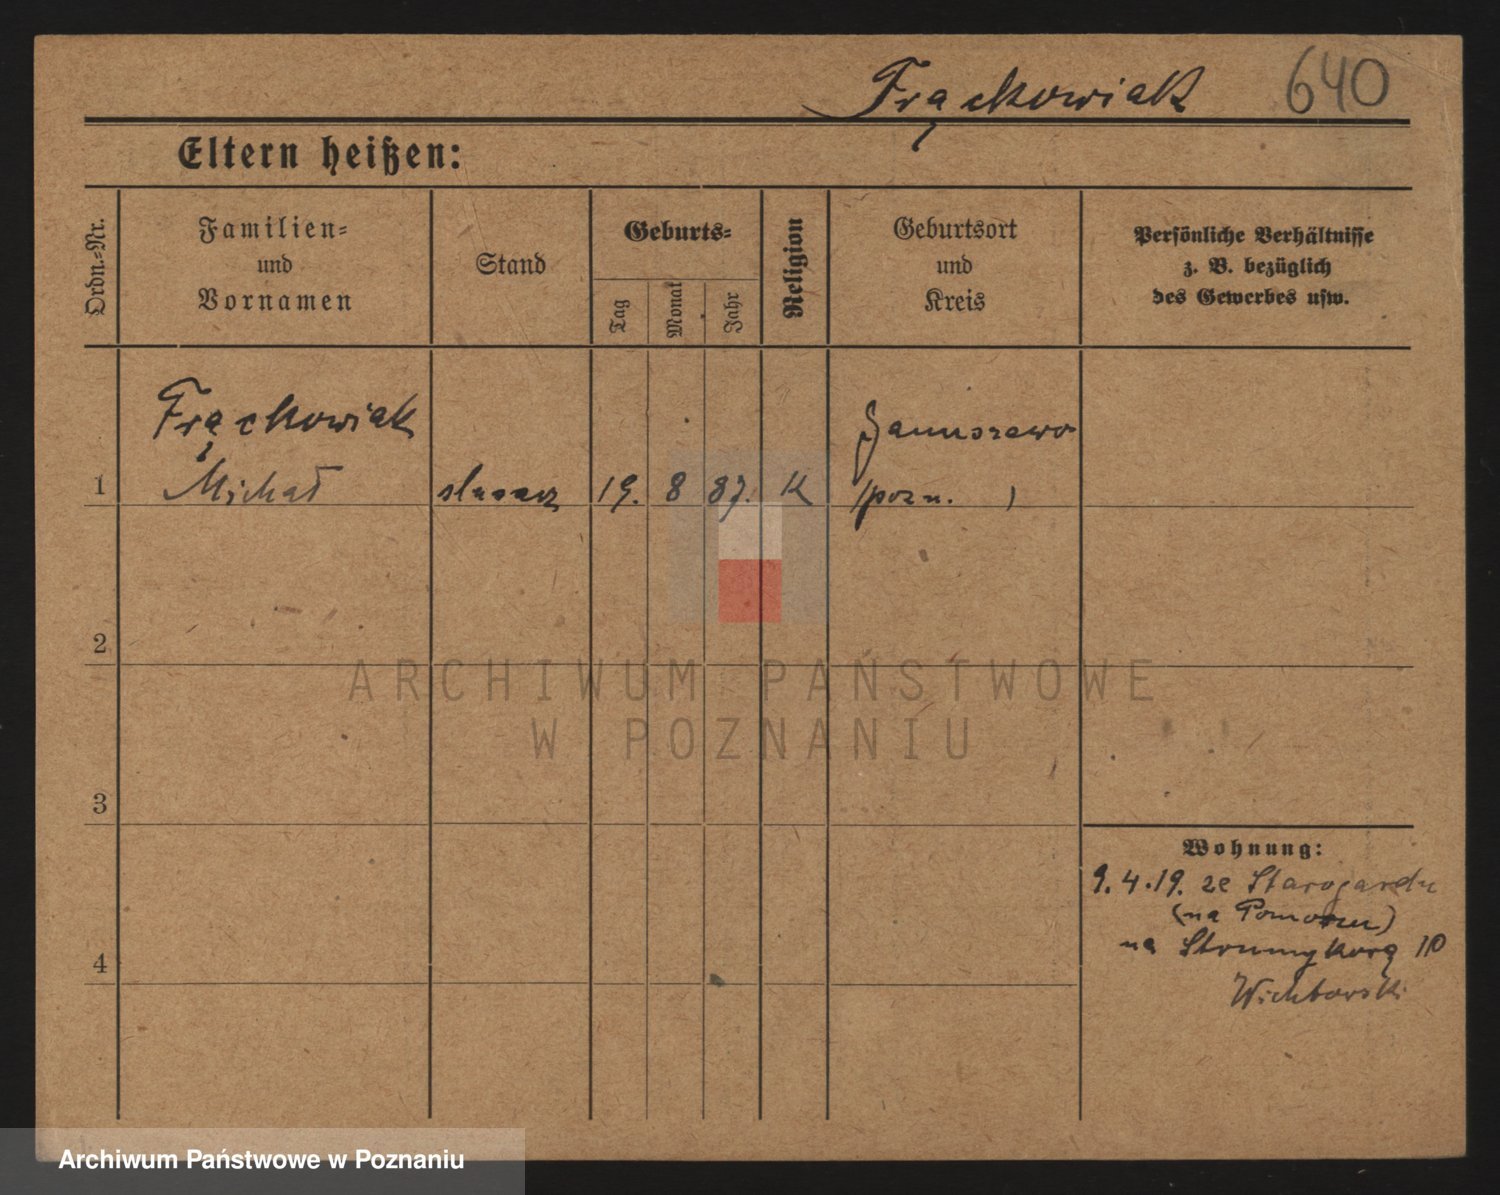 Frąckowiak 640
Eltern heißen:
Ordn.-Nr.
Familien-
und
Vornamen
Stand
Geburts-
Tag
Monat
Jahr
Religion
Geburtsort
und
Kreis
Persönliche Verhältnisse
z. B. bezüglich
des Gewerbes usw.
Frąckowiak
1 Michał 19. 8 87. K (pozn. )
2
3
4
Wohnung:
9.4.19. ze Starogardu
(na Pomorzu)
na 10
ARCHIWUM PAŃSTWOWE
W POZNANIU
Archiwum Państwowe w Poznaniu